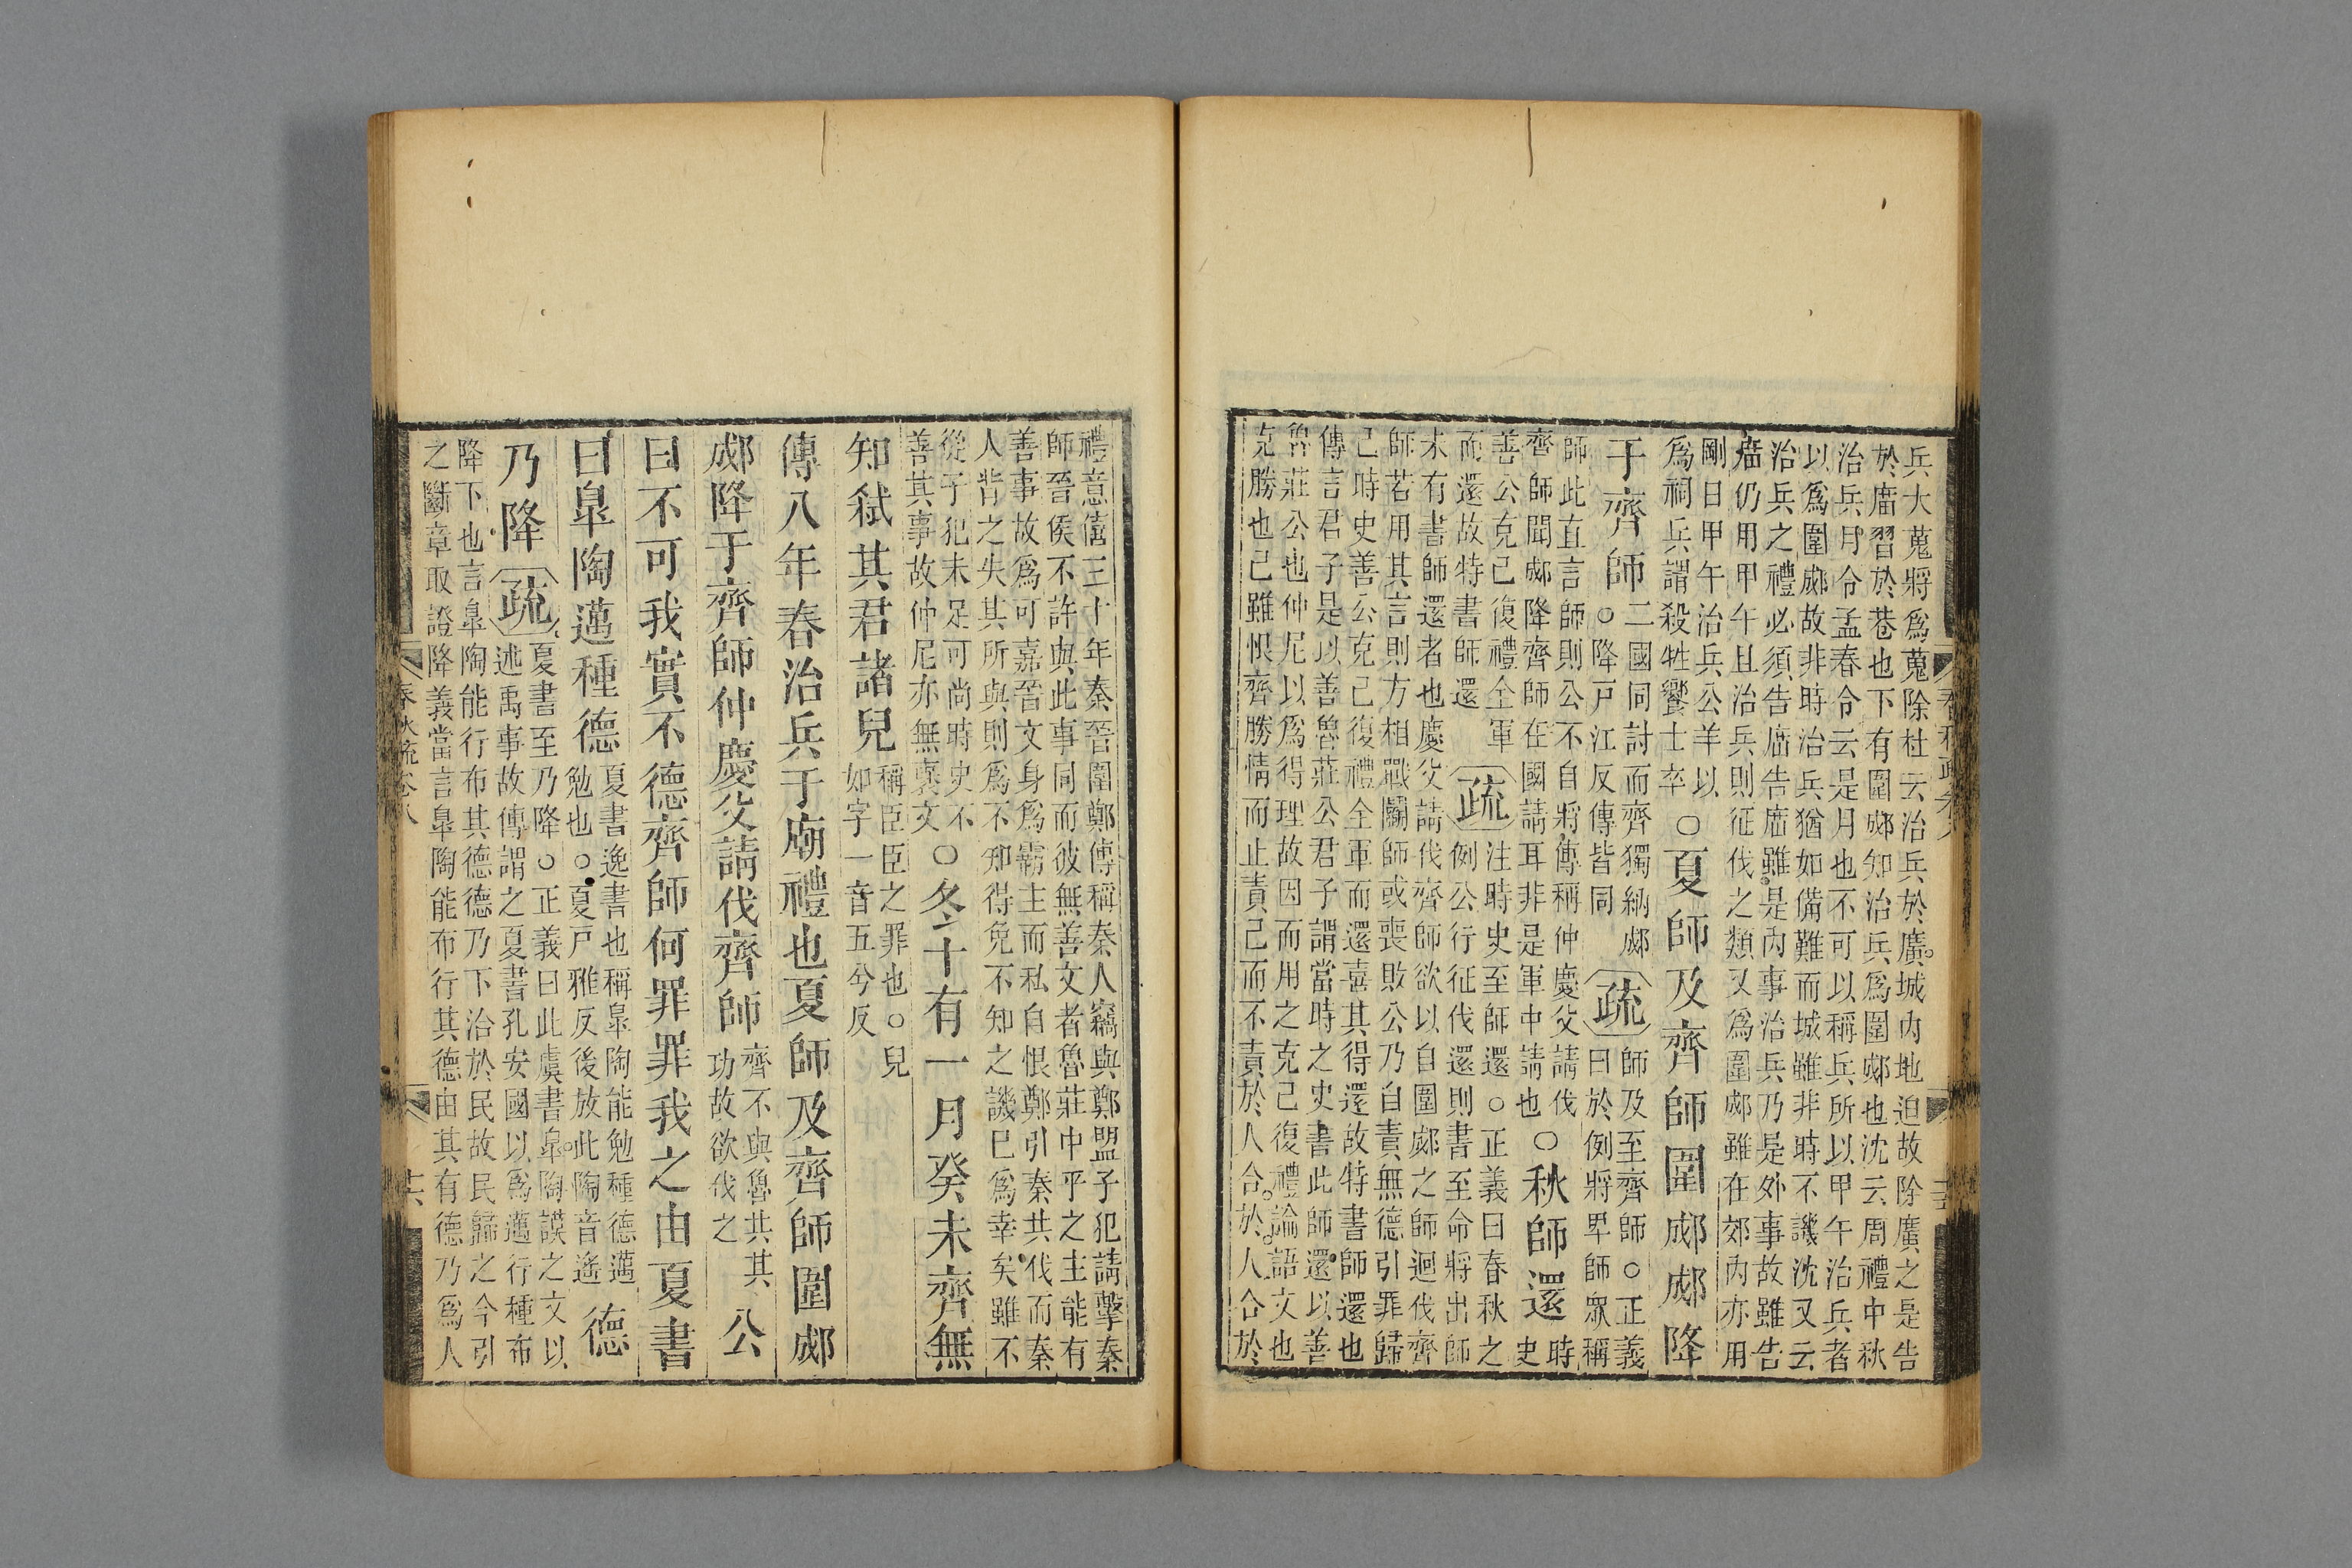 兵大蒐將爲蒐除杜云治兵於廣城內地迫故除廣之是告
於廟習於巷也下有圍郕知治兵爲圍郕也沈云周禮中秋
治兵月令孟春令云是月也不可以稱兵所以甲午治兵者
以爲圍郕故非時治兵猶如備難而城雖非時不譏沈又云
治兵之禮必須告廟告廟雖是內事治兵乃是外事故雖告
廟仍用甲午且治兵則征伐之類又爲圍郕雖在郊內亦用
剛日甲午治兵公羊以
爲祠兵謂殺牲饗士卒
○夏師及齊師圍郕郕降
于齊師
二國同討而齊獨納郕
○降戶江反傳皆同
疏
師及至齊師○正義
曰於例將卑師眾稱
師此直言師則公不自將傳稱仲慶父請伐
齊師聞郕降齊師在國請耳非是軍中請也
○秋師還
時
史
善公克己復禮全軍
而還故特書師還
疏
注時史至師還○正義曰春秋之
例公行征伐還則書至命將出師
未有書師還者也慶父請伐齊師欲以自圍郕之師迴伐齊
師若用其言則方相戰鬭師或喪敗公乃自責無德引罪歸
己時史善公克己復禮全軍而還喜其得還故特書師還也
傳言君子是以善魯莊公君子謂當時之史書此師還以善
魯莊公也仲尼以爲得理故因而用之克己復禮論語文也
克勝也己雖恨齊勝情而止責己而不責於人合於人合於
春秋疏卷八
禮意僖三十年秦晉圍鄭傳稱秦人竊與鄭盟子犯請擊秦
師晉侯不許與此事同而彼無善文者魯莊中平之主能有
善事故爲可嘉晉文身爲霸主而私自恨鄭引秦共伐而秦
人背之失其所與則爲不知得免不知之譏已爲幸矣雖不
從子犯未足可尚時史不
善其事故仲尼亦無襃文
○冬十有一月癸未齊無
知弑其君諸兒
稱臣臣之罪也○兒
如字一音五兮反
傳八年春治兵于廟禮也夏師及齊師圍郕
郕降于齊師仲慶父請伐齊師
齊不與魯共其
功故欲伐之
公
曰不可我實不德齊師何罪罪我之由夏書
曰皐陶邁種德
夏書逸書也稱皐陶能勉種德邁
勉也○夏戶雅反後放此陶音遙
德
乃降
疏
夏書至乃降○正義曰此虞書皐陶謨之文以
述禹事故傳謂之夏書孔安國以爲邁行種布
降下也言皐陶能行布其德德乃下洽於民故民歸之今引
之斷章取證降義當言皐陶能布行其德由其有德乃爲人
春秋疏卷八